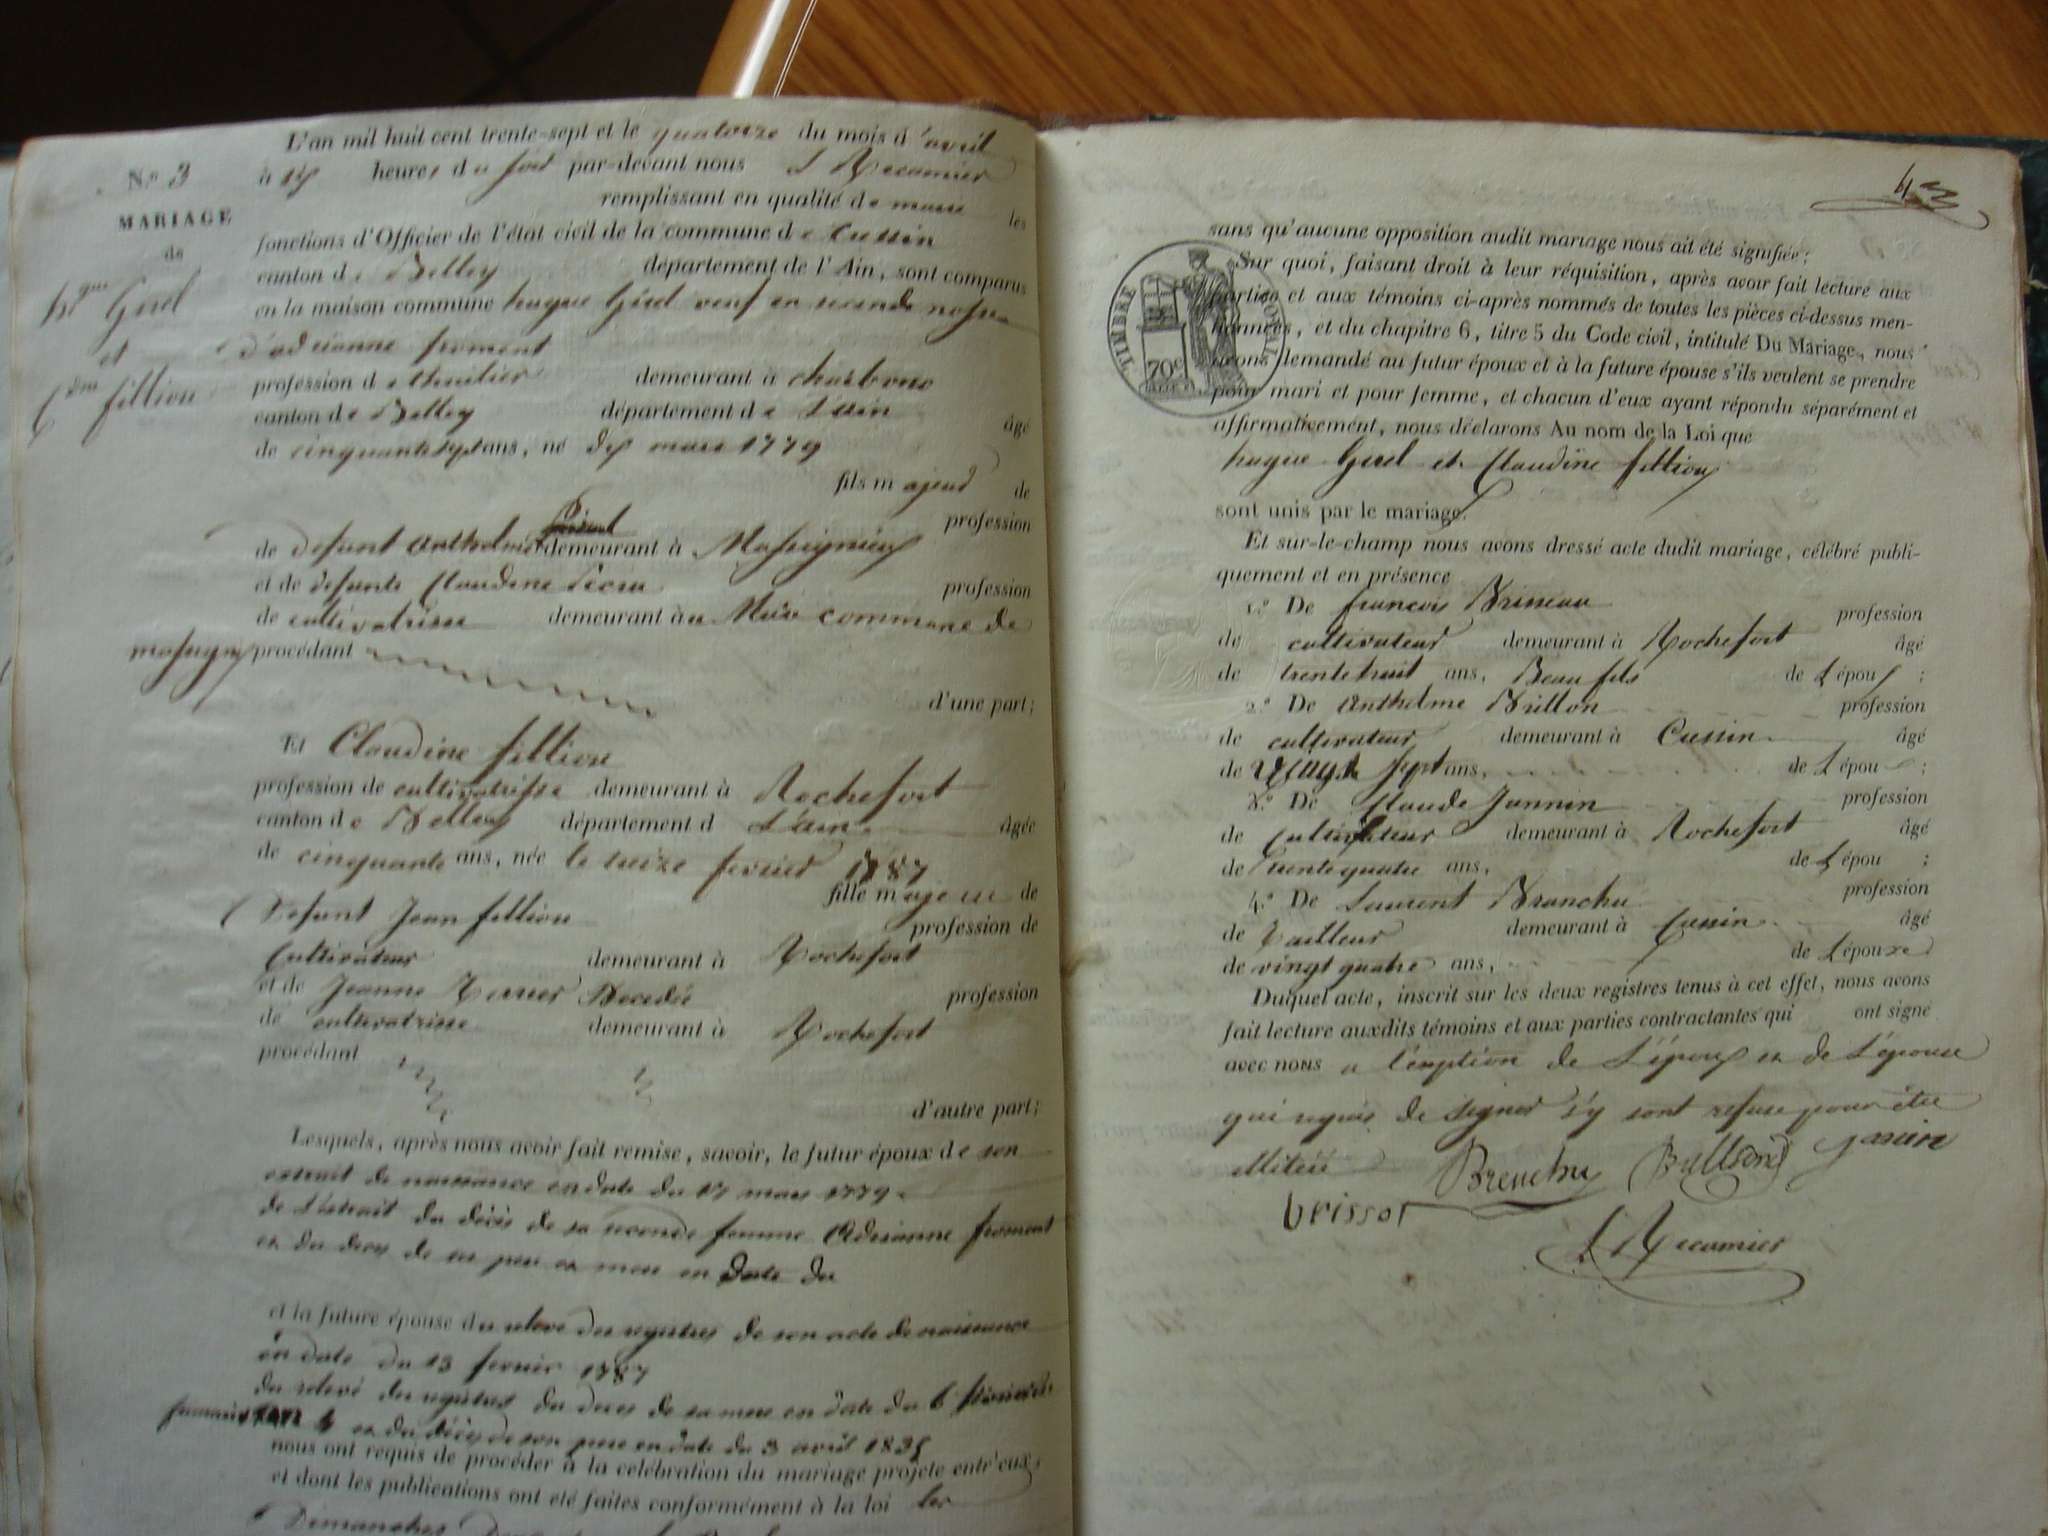 L'an mil huit cent trente-sept et le quatorze du mois d'avril
N.º 3
à heures du soir par-devant nous L Recamier
MARIAGE
remplissant en qualité de maire les
de
fonctions d'Officier de l'état civil de la commune de Cussin
canton de Belley département de l'Ain, sont comparus
hgue Girel
en la maison commune hugue Girel veuf en seconde nosse
et
d'adrianne froment
Cdine fillion
profession de thuilier demeurant à charbonod
canton de Belley département de L'ain âgé
de cinquantesept ans, né mars 1779
fils majeur de
profession
de defunt anthelme Girel demeurant à Massignieux
et de defunte Claudine profession
de cultivatrisse demeurant à commune de
massignieu procédant
d'une part;
Et Claudine fillion
profession de cultivatrisse demeurant à Rochefort
canton de Belley département d L'ain âgée
de cinquante ans, née le treize fevrier 1787
fille majeure de
Defunt Jean fillion profession de
Cultivateur demeurant à Rochefort
et de Jeanne Decedée profession
de cultivatrisse demeurant à Rochefort
procédant
d'autre part;
Lesquels, après nous avoir fait remise, savoir, le futur époux de son
extrait de naissance en date du 17 mars 1779
de L'extrait du décès de sa seconde femme Adrianne froment
et du deces de ses pere et mere en date du
et la future épouse du releve des registres de son acte de naissance
en date du 13 fevrier 1787
du relevé des registres du deces de sa mere en date du 6
et du décès de son pere en date du 3 avril 1835
nous ont requis de procéder à la célébration du mariage projeté entr'eux,
et dont les publications ont été faites conformément à la loi les
Dimanches
43
sans qu'aucune opposition audit mariage nous ait été signifiée;
Sur quoi, faisant droit à leur réquisition, après avoir fait lecture aux
parties et aux témoins ci-après nommés de toutes les pièces ci-dessus men-
tionnées, et du chapitre 6, titre 5 du Code civil, intitulé Du Mariage, nous
avons demandé au futur époux et à la future épouse s'ils veulent se prendre
pour mari et pour femme, et chacun d'eux ayant répondu séparément et
affirmativement, nous déclarons Au nom de la Loi que
TIMBRE ROYAL
70c
hugue Girel et Claudine fillion
sont unis par le mariage.
Et sur-le-champ nous avons dressé acte dudit mariage, célébré publi-
quement et en présence
1.º De francois profession
de cultivateur demeurant à Rochefort âgé
de trentehuit ans, Beau fils de L'époux ;
2.º De Anthelme Brillon profession
de cultivateur demeurant à Cussin âgé
de vingt sept ans, de L'épou ;
3.º De Claude Jannin profession
de Cultivateur demeurant à Rochefort âgé
de trentequatre ans, de L'épou ;
4.º De Laurent Branchu profession
de tailleur demeurant à Cussin âgé
de vingt quatre ans, de L'épouxe
Duquel acte, inscrit sur les deux registres tenus à cet effet, nous avons
fait lecture auxdits témoins et aux parties contractantes qui ont signé
avec nous a l'exception de L'époux et de L'épouse
qui requis de signer s'y sont refuse pour être
illiteré Brenchu Brillon Janin
brissot
L Recamier